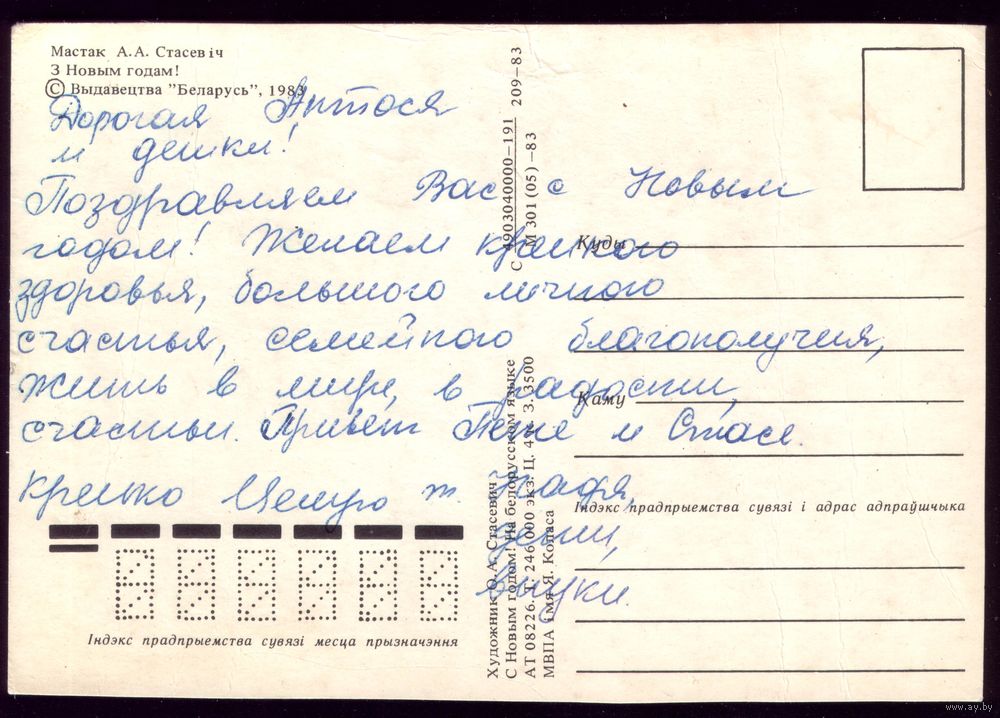 Мастак А.А. Стасевіч
З Новым годам!
© Выдавецтва "Беларусь", 1983
Дорогая Антося
и детки!
Поздравляем Вас с Новым
годом! Желаем крепкого
здоровья, большого личного
счастья, семейного благополучия,
жить в мире, в радости,
счастьи. Привет Пете и Стасе.
Крепко Целую т. Надя,
дети,
внуки.
Індэкс прадпрыемства сувязі месца прызначэння
Художник О.А. Стасевич
С Новым годом! На белорусском языке
АТ 08226. Т. 246 000 экз. Ц. 4 к. З. 3500
МВПА імя Я. Коласа
С 4903040000—191 209—83
М 301 (05)—83
Куды
Каму
Індэкс прадпрыемства сувязі і адрас адпраўшчыка
www.ay.by